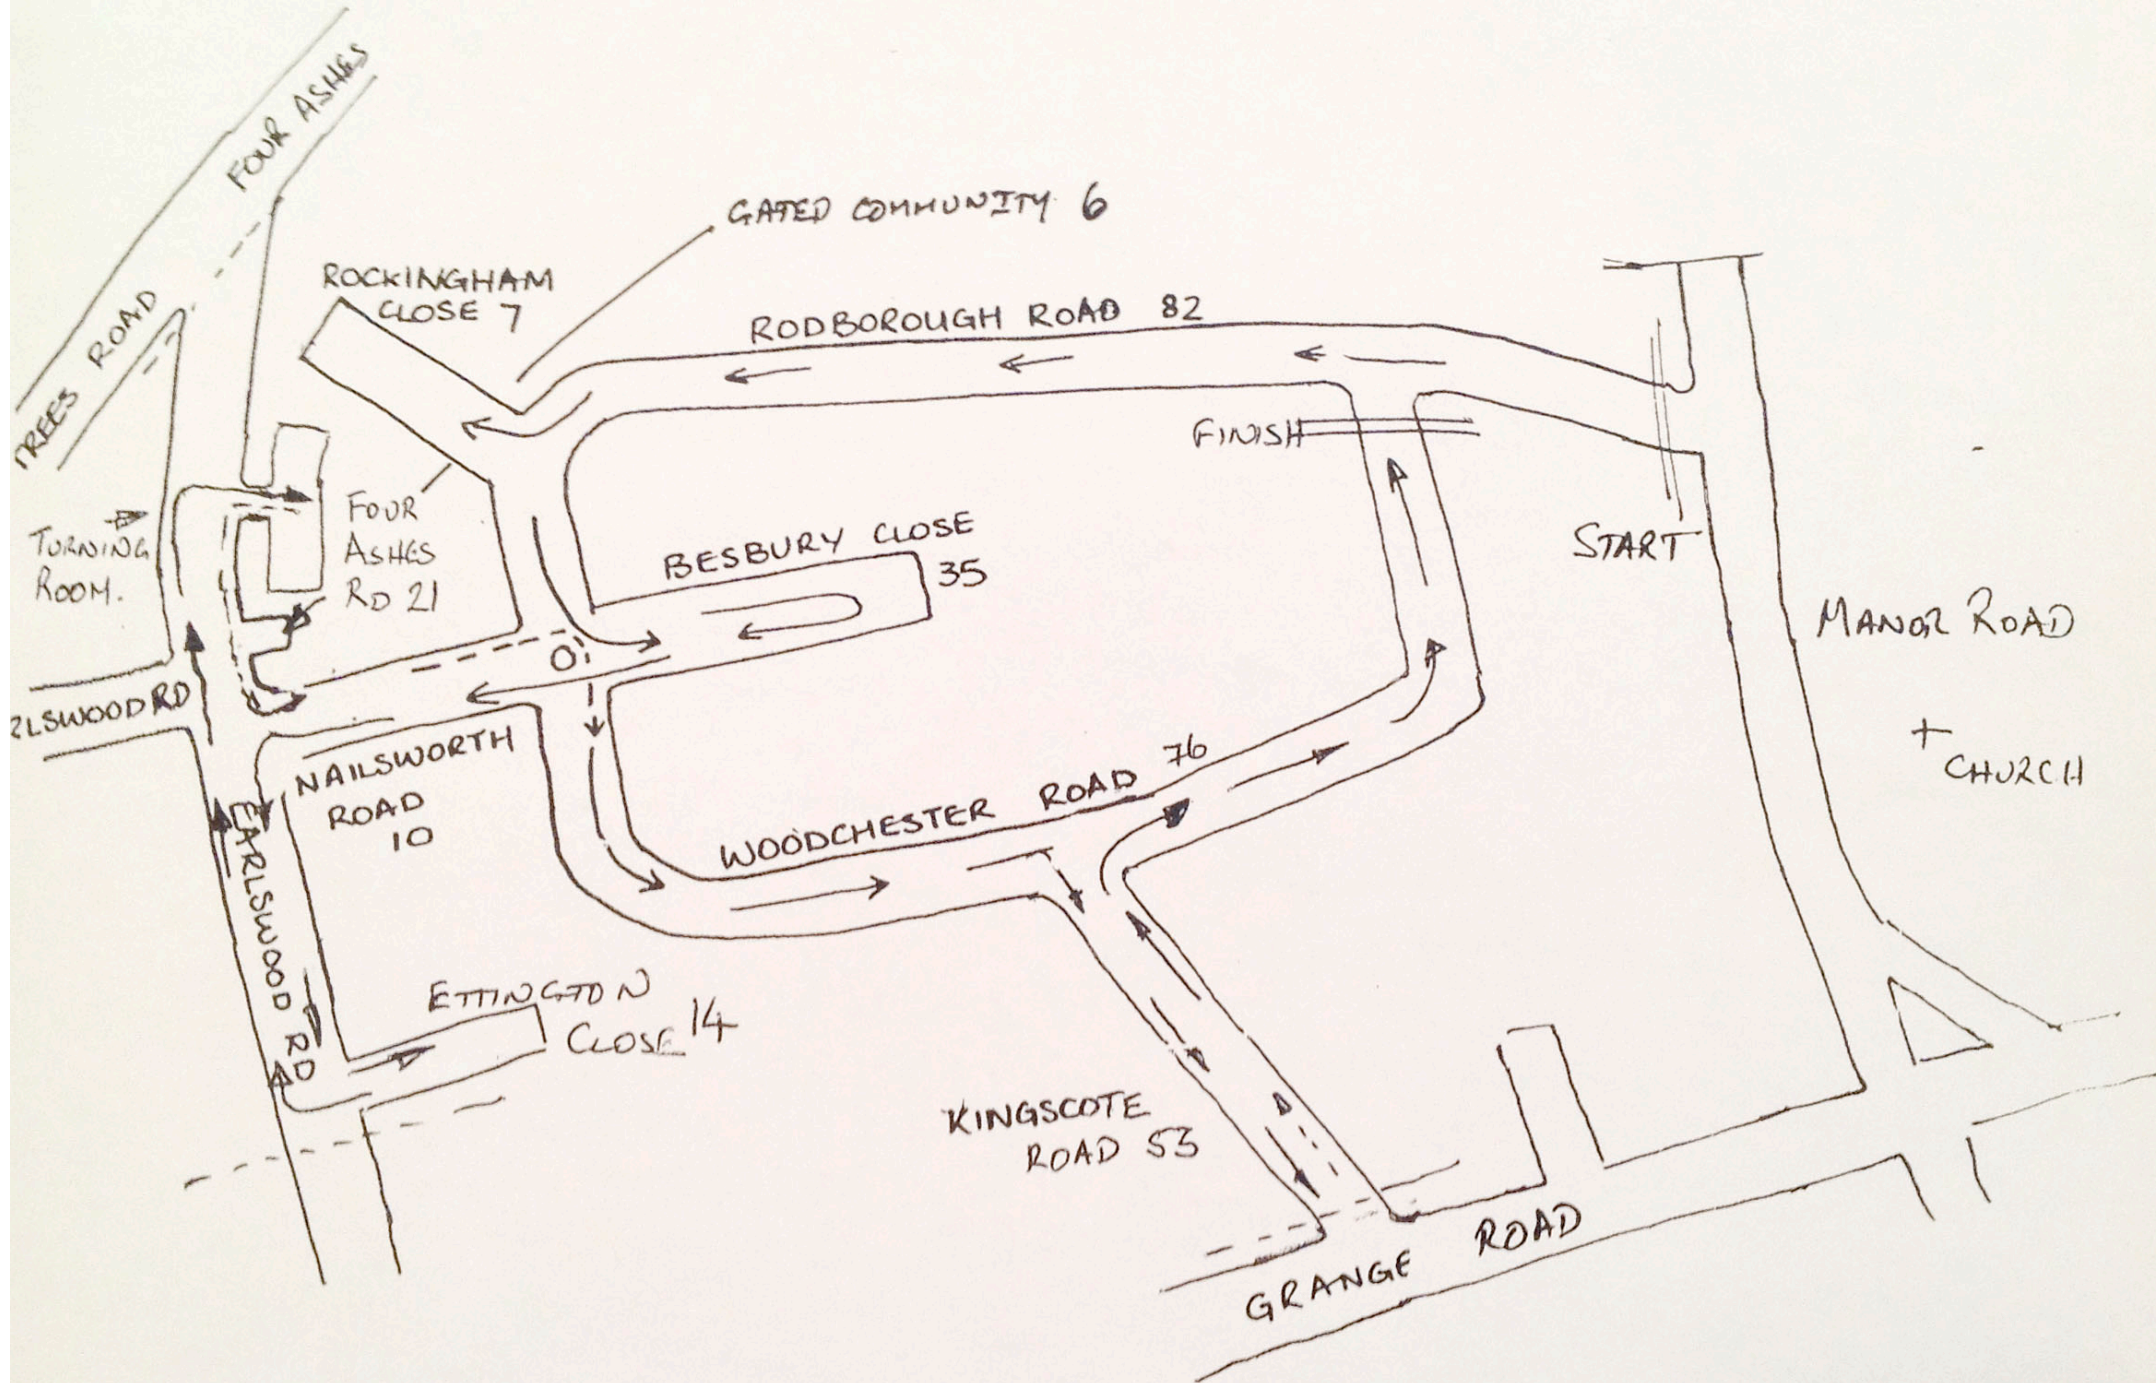 FOUR ASHES
TREES ROAD
GATED COMMUNITY 6
ROCKINGHAM
CLOSE 7
RODBOROUGH ROAD 82
FINISH
START
TURNING
ROOM.
FOUR
ASHES
RD 21
BESBURY CLOSE
35
MANOR ROAD
RLSWOOD RD
NAILSWORTH
ROAD
10
WOODCHESTER ROAD 76
CHURCH
EARLSWOOD RD
ETTINGTON
CLOSE 14
KINGSCOTE
ROAD 53
GRANGE ROAD